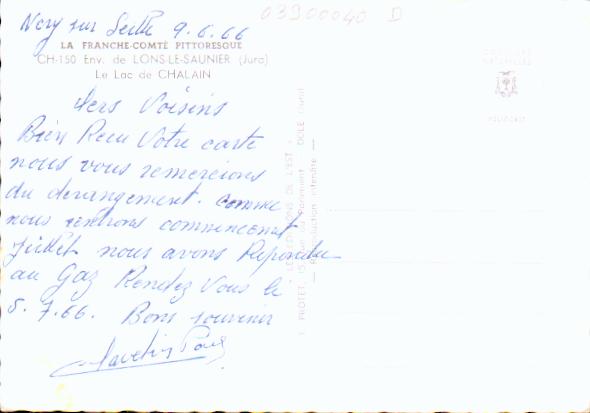 Nevy sur Seille 9.6.66
03900040 D
LA FRANCHE-COMTÉ PITTORESQUE
CH-150 Env. de LONS-LE-SAUNIER (Jura)
Le Lac de CHALAIN
Chers Voisins
Bien Recu Votre carte
nous vous remercions
du derangement. Comme
nous rentrons commencement
juillet nous avons Repondu
au Gaz Rendez Vous le
5.7.66. Bons souvenir
Paul
LES EDITIONS DE L'EST
PROTET, 15 DOLE (Jura)
— Reproduction interdite —
COULEURS NATURELLES